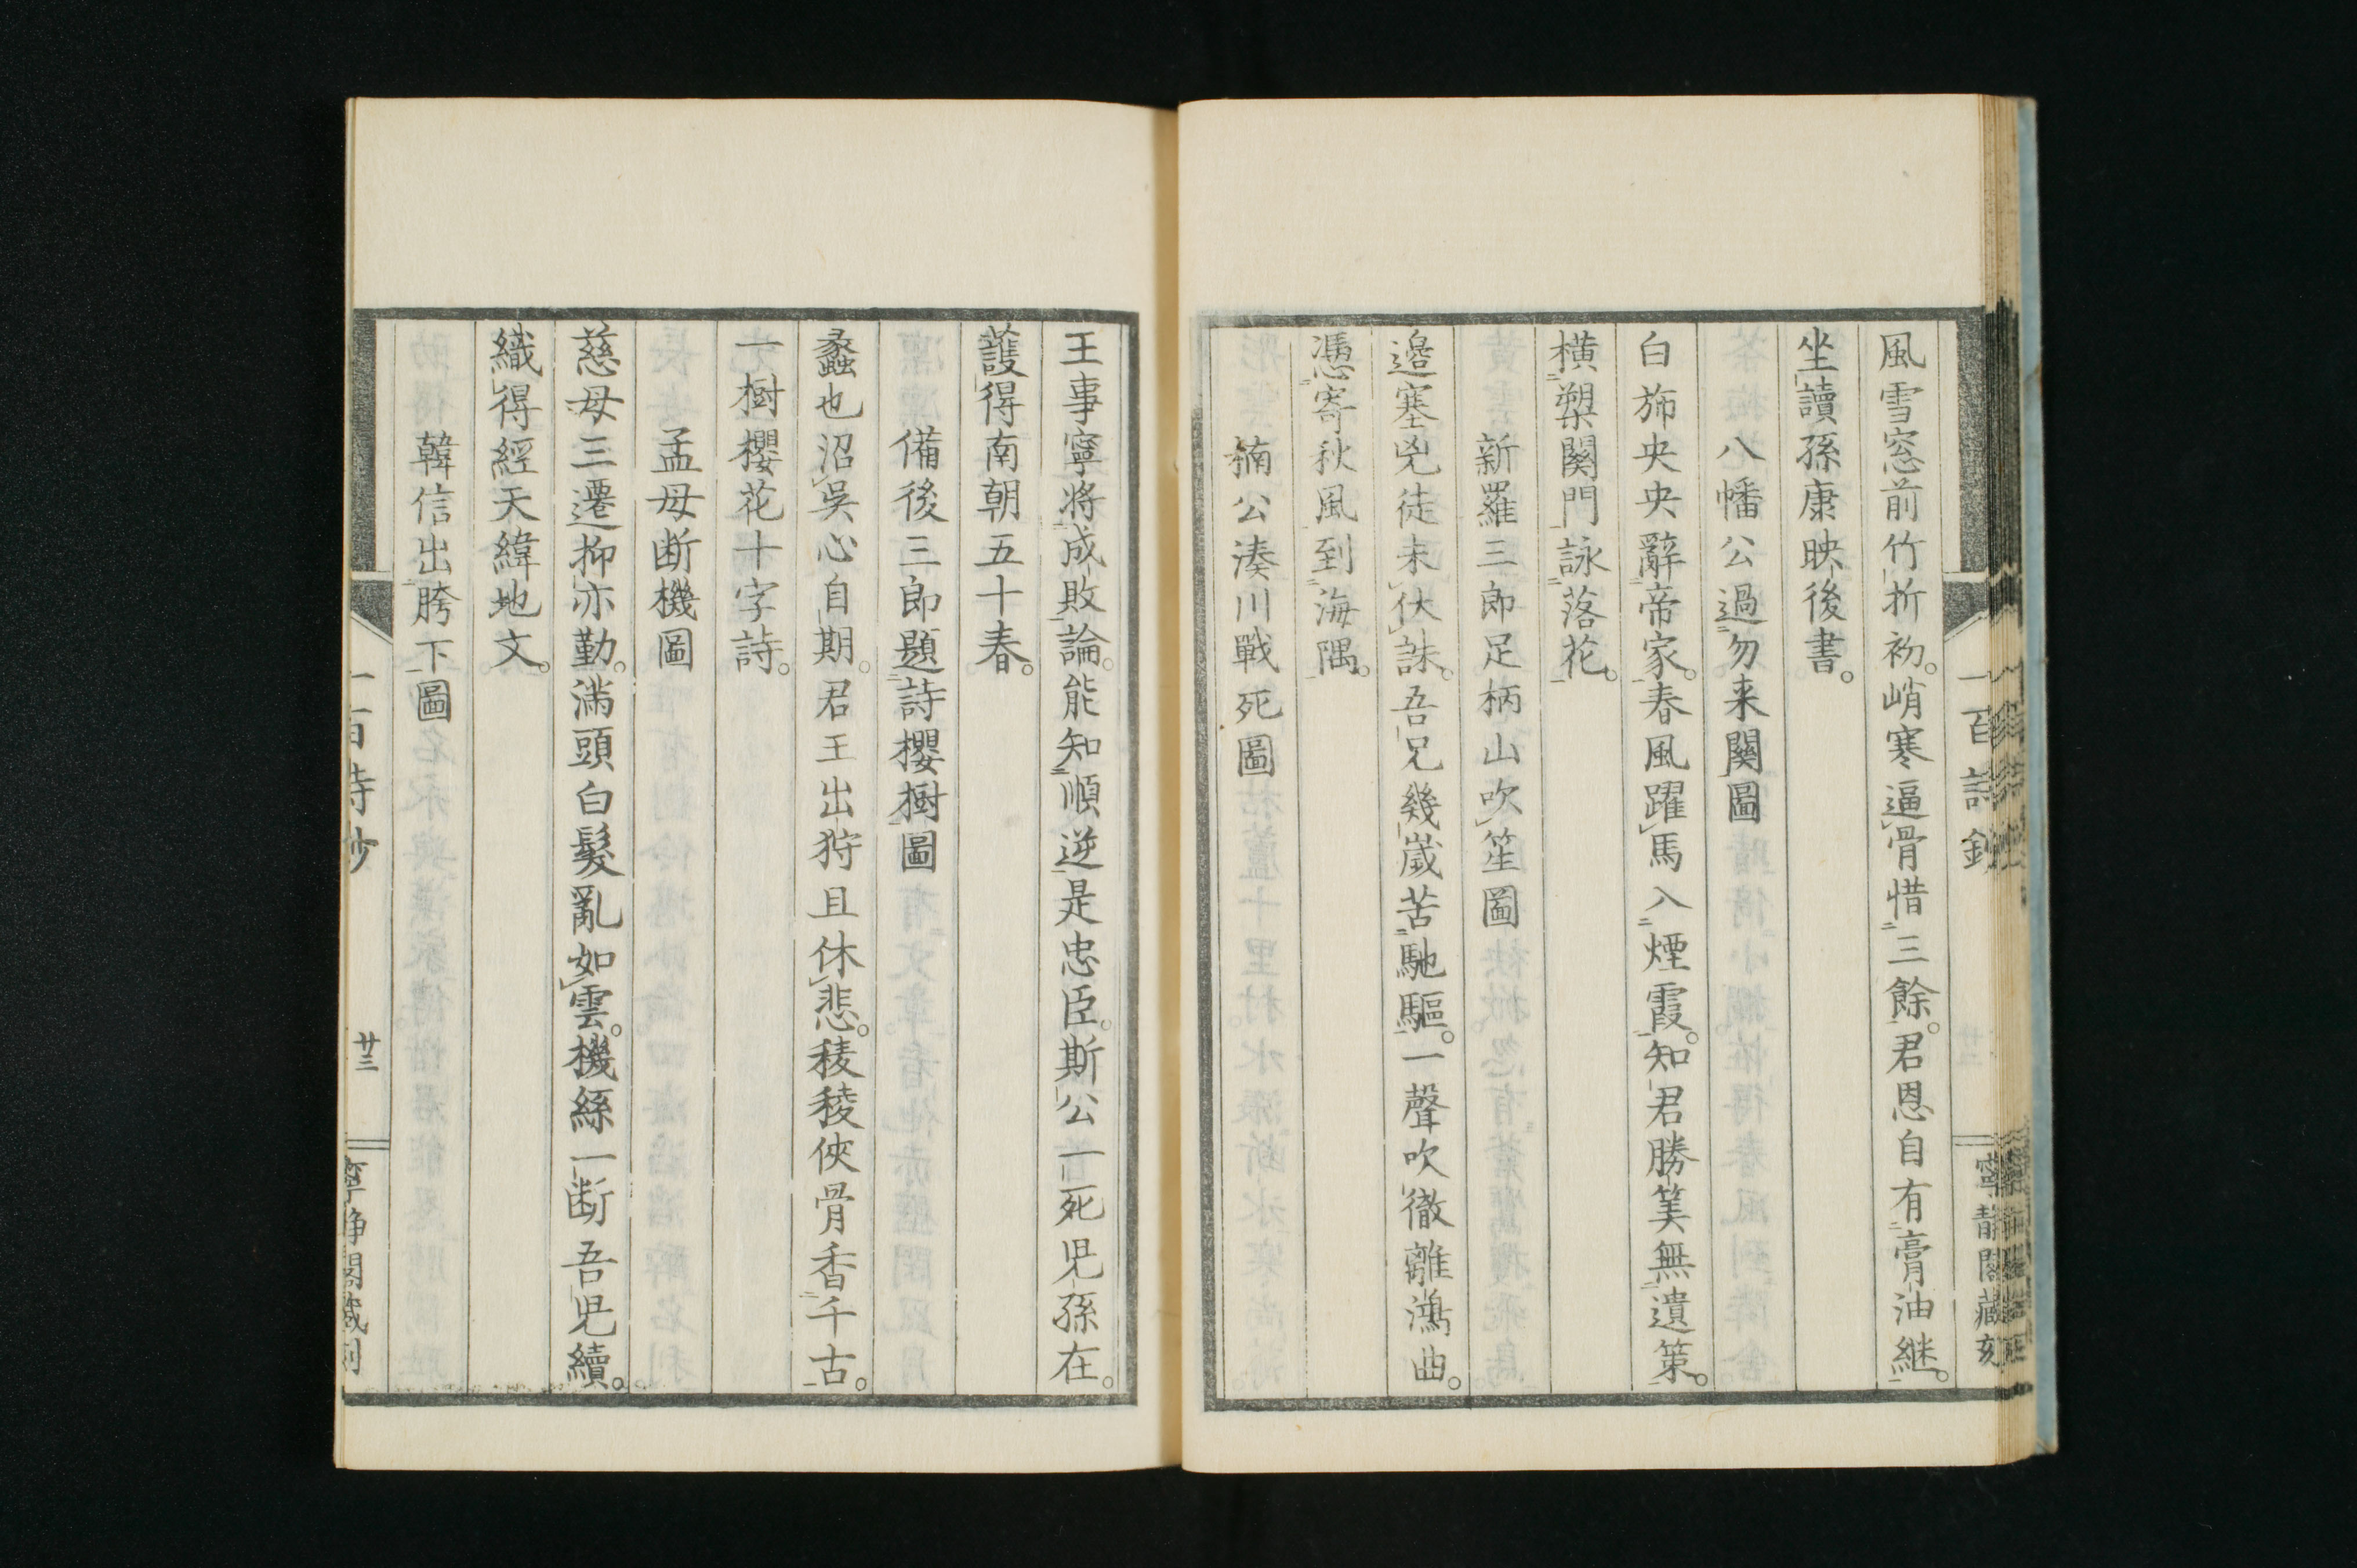 風雪窓前竹折初。峭寒逼骨惜三餘。君恩自有膏油継。
坐讀孫康映後書。
八幡公過勿来関圖
白旆央央辭帝家。春風躍馬入煙霞。知君勝筭無遺策。
横槊関門詠落花。
新羅三郎足柄山吹笙圖
邉塞兇徒未伏誅。吾兄幾歳苦馳驅。一聲吹徹離鴻曲。
憑寄秋風到海隅。
楠公湊川戰死圖
王事寧将成敗論。能知順逆是忠臣。斯公一死児孫在。
護得南朝五十春。
備後三郎題詩櫻樹圖
蠡也沼吳心自期。君王出狩且休悲。稜稜俠骨香千古。
一樹櫻花十字詩。
孟母断機圖
慈母三遷抑亦勤。滿頭白髮亂如雲。機絲一断吾児續。
織得經天緯地文。
韓信出胯下圖
廿三